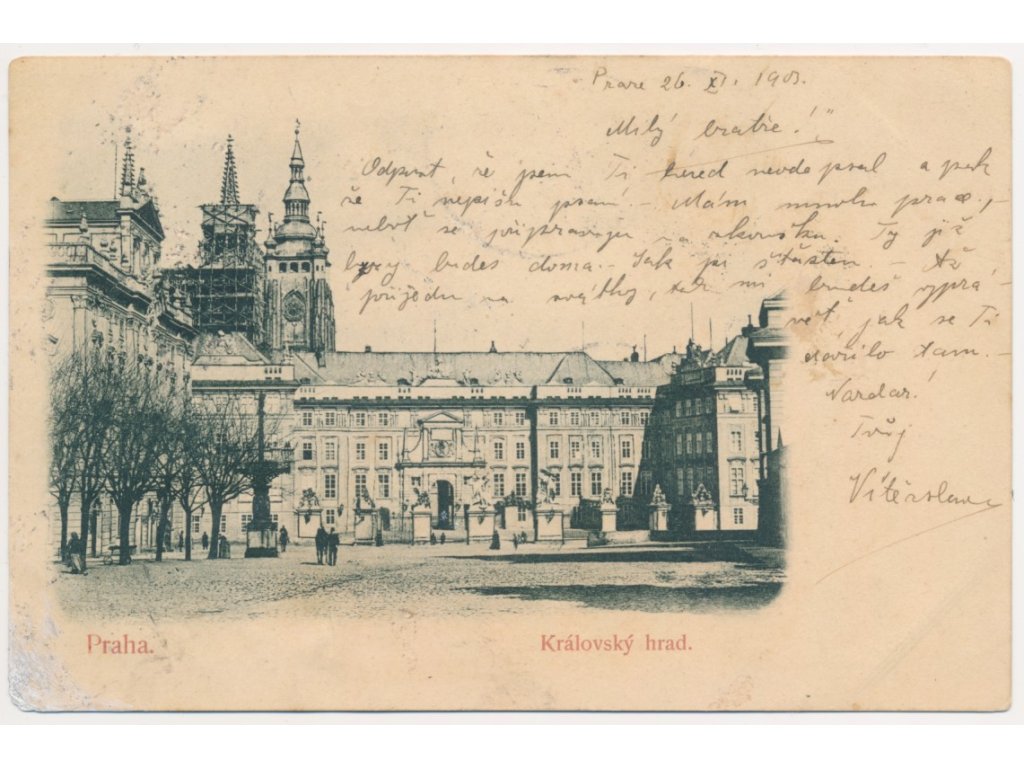 Praze 26. XI. 1903.
Milý bratře!
Odpusť, že jsem Ti hned neodepsal a pak
že Ti nepíšu psaní – Mám mnoho práce,
neboť se připravuju na zkoušku. Ty již
brzy budeš doma. – Jak jsi šťasten – Až
přijedu na svátky, tak mi budeš vyprá-
vět, jak se Ti
dařilo tam. –
Nazdar!
Tvůj
Vítězslav
Praha.
Královský hrad.